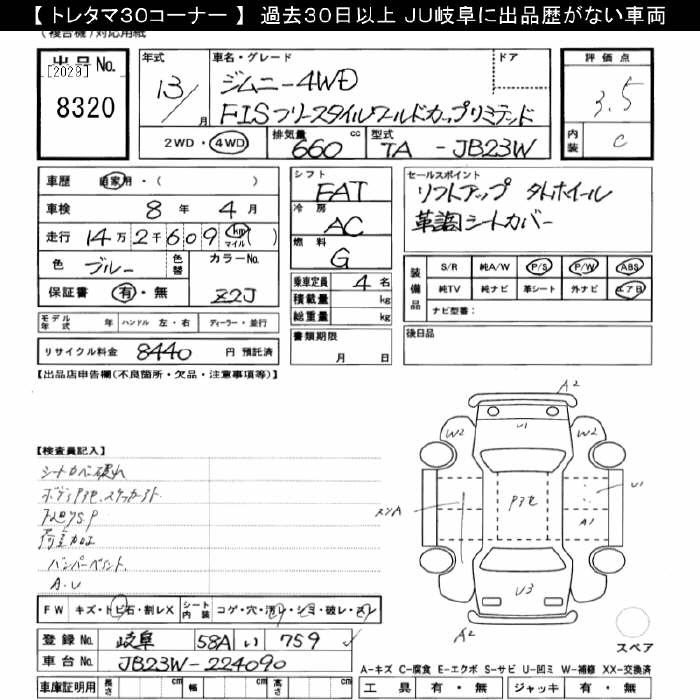 【 トレタマ30コーナー 】 過去30日以上 JU岐阜に出品歴がない車両
(複合機)対応用紙
出品No.
[2029]
8320
年式
13/
月
車名・グレード
ジムニー 4WD
FISフリースタイルワールドカップリミテッド
ドア
2WD・4WD
排気量
660
cc
型式
TA - JB23W
評価点
3.5
内装
C
車歴 自家用・( )
車検 8 年 4 月
走行 14万2千609 km マイル ( )
色 ブルー 色替 カラーNo.
保証書 有・無 Z2J
モデル年式 年 ハンドル 左・右 ディーラー・並行
リサイクル料金 8440 円 預託済
シフト
FAT
冷房
AC
燃料
G
乗車定員 4 名
積載量 kg
総重量 kg
書類期限
月 日
セールスポイント
リフトアップ 外ホイール
革調シートカバー
装備品
S/R 純A/W P/S P/W ABS
純TV 純ナビ 革シート 外ナビ エアB
ナビ型番:
後日品
【出品店申告欄(不良箇所・欠品・注意事項等)】
【検査員記入】
シートカバー破れ
バンパーペイント
A.U
A2
W2
U1
W2
U1
A1
U3
A2
スペア
FW キズ・トビ石・割レX シート内装 コゲ・穴・汚レ・シミ・破レ・スレ
登録No. 岐阜 58A い 759
車台No. JB23W-224090
車庫証明用 長さ cm 幅 cm 高さ cm
A-キズ C-腐食 E-エクボ S-サビ U-凹ミ W-補修 XX-交換済
工具 有・無 ジャッキ 有・無